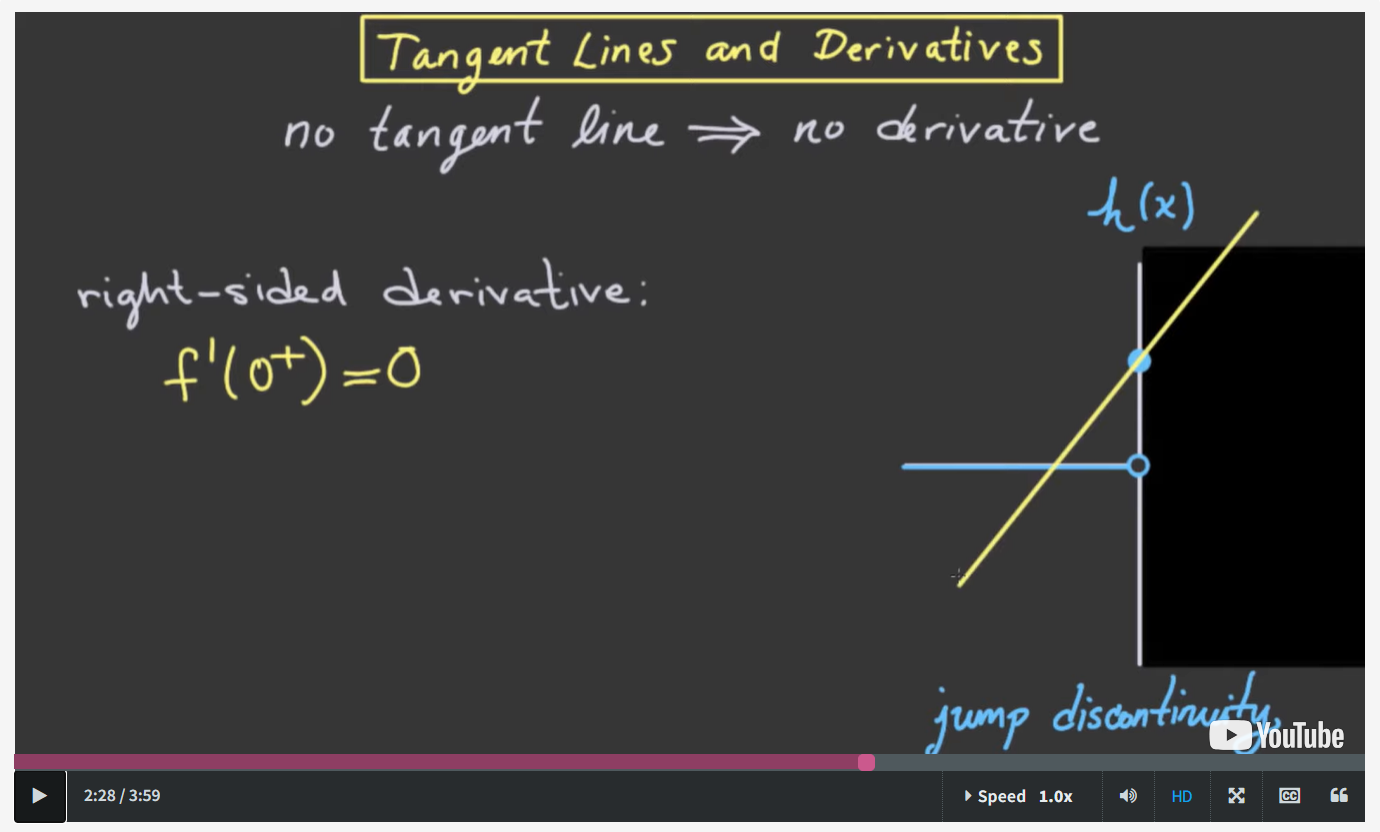 Tangent Lines and Derivatives
no tangent line ⇒ no derivative
h(x)
right-sided derivative:
f'(0⁺)=0
jump discontinuity,
YouTube
2:28 / 3:59
Speed 1.0x
HD
CC